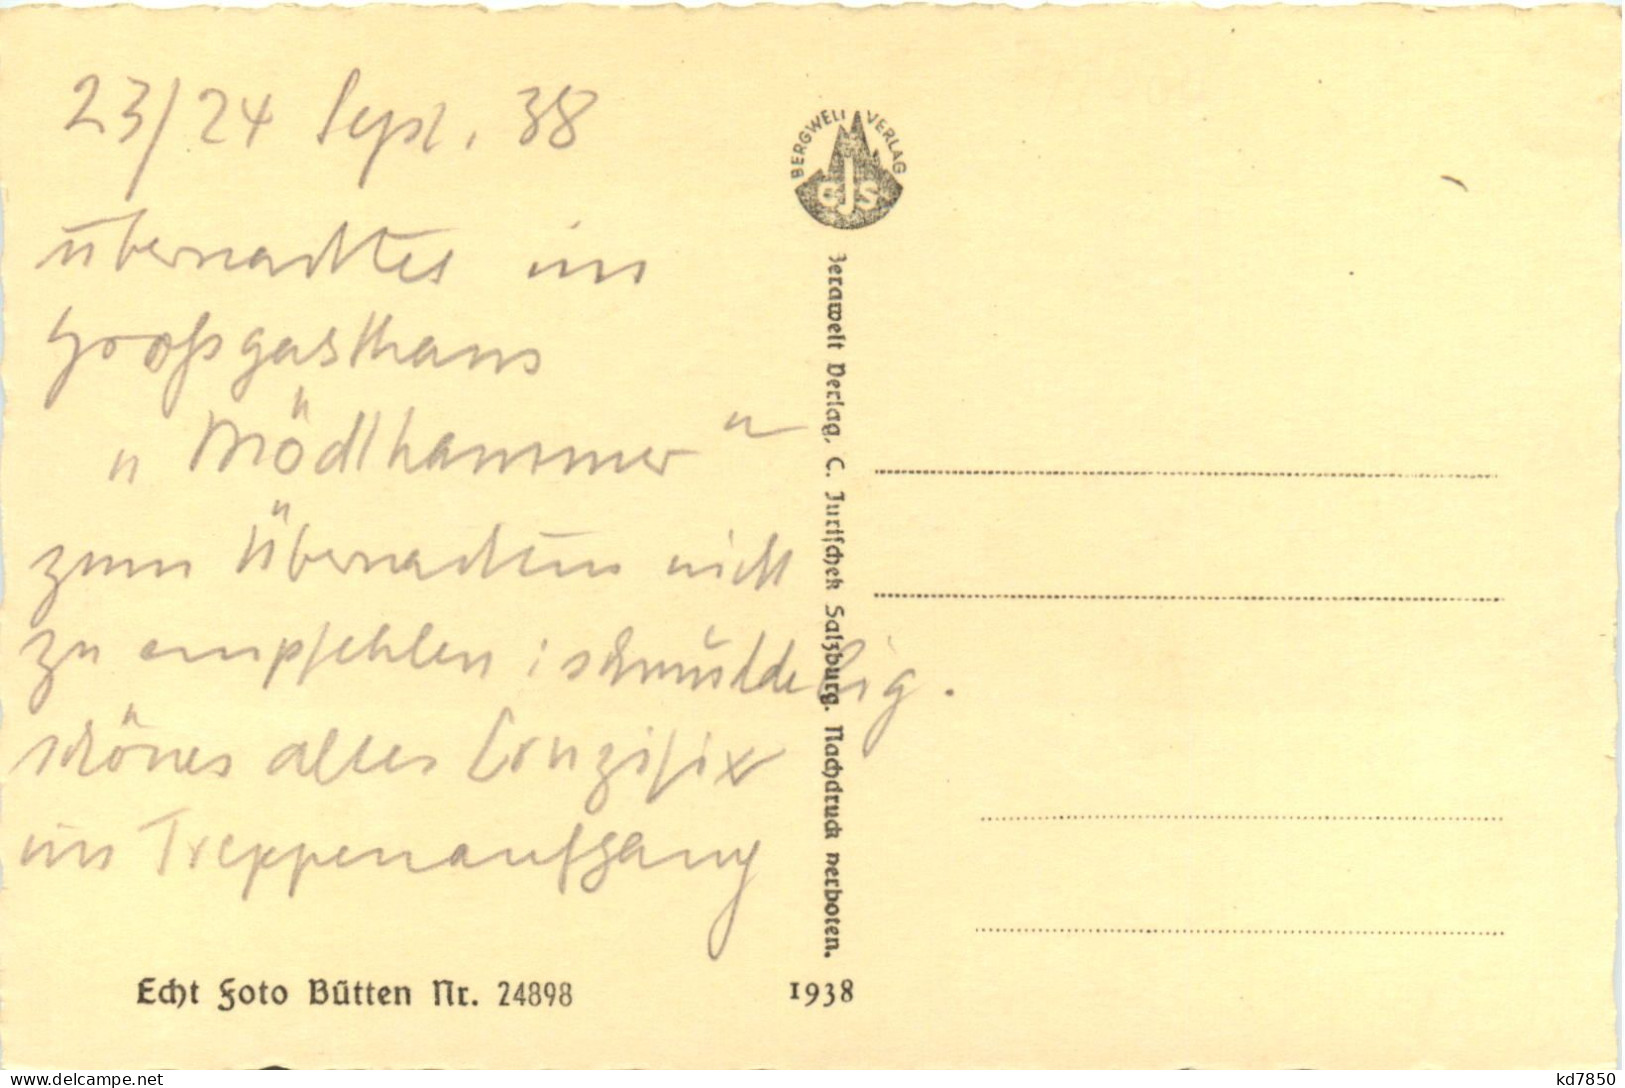 23/24 Sept. 38
übernachtet im
Großgasthaus
„Mödlhammer“
zum Übernachten nicht
zu empfehlen: schmuddelig.
schönes altes Cruzifix
im Treppenaufgang
Echt Foto Bütten Nr. 24898
BERGWELT VERLAG
CJS
Bergwelt Verlag, C. Jurischek Salzburg. Nachdruck verboten.
1938
www.delcampe.net
kd7850